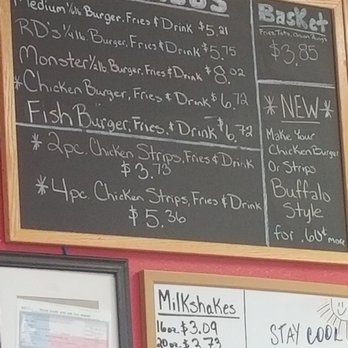 Medium ¼ lb Burger, Fries & Drink $5.21
RD's ¼ lb Burger, Fries & Drink $5.75
Monster ½ lb Burger, Fries & Drink $8.02
*Chicken Burger, Fries & Drink $6.72
Fish Burger, Fries, & Drink $6.72
*2pc. Chicken Strips, Fries & Drink
$3.78
*4pc. Chicken Strips, Fries & Drink
$5.36
Basket
Fries, Tots, Onion Rings
$3.85
*NEW*
Make Your
Chicken Burger
Or Strips
Buffalo
Style
for .60¢ more
Milkshakes
16oz. $3.09
20oz. $3.73
STAY COOL